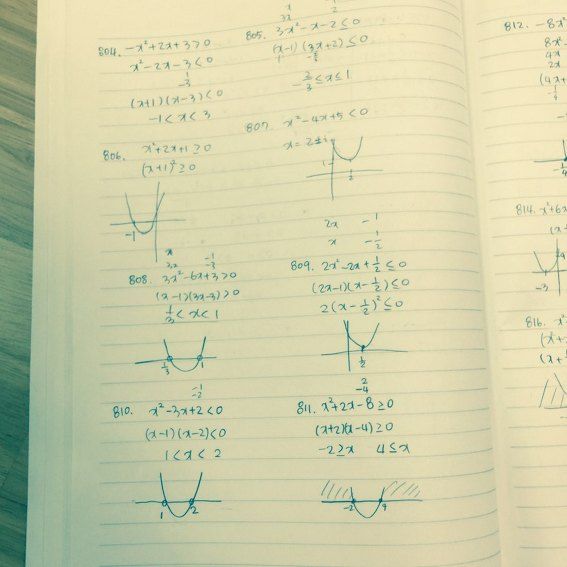 804. -x²+2x+3>0
x²-2x-3<0
1
-3
(x+1)(x-3)<0
-1<x<3
805. 3x²-x-2≤0
(x-1)(3x+2)≤0
-2/3≤x≤1
806. x²+2x+1≥0
(x+1)²≥0
-1
807. x²-4x+5<0
x=2±i
1
2x -1
x -1/2
x -1
3x -3
808. 3x²-6x+3>0
(x-1)(3x-3)>0
1/3<x<1
1/3 1
809. 2x²-2x+1/2≤0
(2x-1)(x-1/2)≤0
2(x-1/2)²≤0
1/2
-1
-2
810. x²-3x+2<0
(x-1)(x-2)<0
1<x<2
1 2
2
-4
811. x²+2x-8≥0
(x+2)(x-4)≥0
-2≥x 4≤x
-2 4
812. -8x²
8x²
4x
2x
(4x+
814. x²+6x
(x+
-3
816. x²
(x²+
(x+